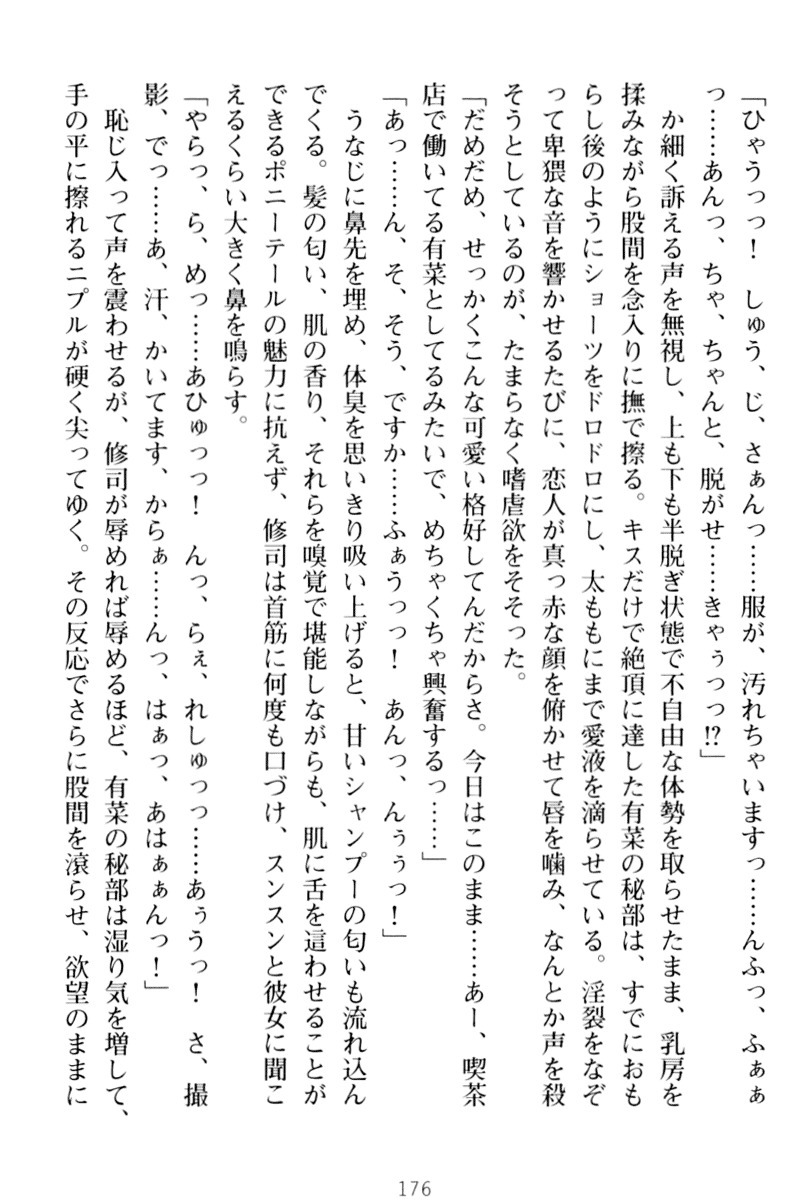 「ひゃうっっ！　しゅう、じ、さぁんっ……服が、汚れちゃいますっ……んふっ、ふぁぁ
っ……あんっ、ちゃ、ちゃんと、脱がせ……きゃぅっっ!?」
　か細く訴える声を無視し、上も下も半脱ぎ状態で不自由な体勢を取らせたまま、乳房を
揉みながら股間を念入りに撫で擦る。キスだけで絶頂に達した有菜の秘部は、すでにおも
らし後のようにショーツをドロドロにし、太ももにまで愛液を滴らせている。淫裂をなぞ
って卑猥な音を響かせるたびに、恋人が真っ赤な顔を俯かせて唇を噛み、なんとか声を殺
そうとしているのが、たまらなく嗜虐欲をそそった。
「だめだめ、せっかくこんな可愛い格好してんだからさ。今日はこのまま……あー、喫茶
店で働いてる有菜としてるみたいで、めちゃくちゃ興奮するっ……」
「あっ……ん、そ、そう、ですか……ふぁうっっ！　あんっ、んぅぅっ！」
　うなじに鼻先を埋め、体臭を思いきり吸い上げると、甘いシャンプーの匂いも流れ込ん
でくる。髪の匂い、肌の香り、それらを嗅覚で堪能しながらも、肌に舌を這わせることが
できるポニーテールの魅力に抗えず、修司は首筋に何度も口づけ、スンスンと彼女に聞こ
えるくらい大きく鼻を鳴らす。
「やらっ、ら、めっ……あひゅっっ！　んっ、らぇ、れしゅっっ……あぅうっ！　さ、撮
影、でっ……あ、汗、かいてます、からぁ……んっ、はぁっ、あはぁぁんっ！」
　恥じ入って声を震わせるが、修司が辱めれば辱めるほど、有菜の秘部は湿り気を増して、
手の平に擦れるニプルが硬く尖ってゆく。その反応でさらに股間を滾らせ、欲望のままに
176